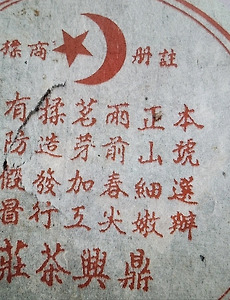 註册商標
本號選辦
正山細嫩
雨前春尖
茗芽加工
揉造發行
有防假冒
鼎興茶莊